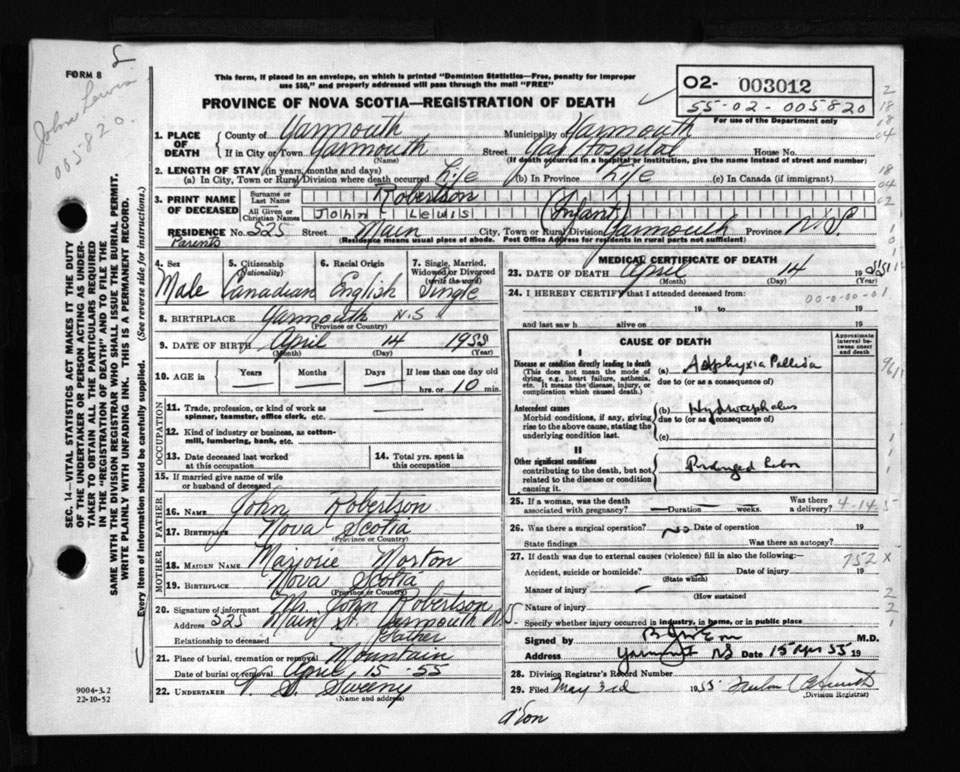 FORM 8
John Lewis
005820.
This form, if placed in an envelope, on which is printed "Dominion Statistics—Free, penalty for improper
use $50," and properly addressed will pass through the mail "FREE"
PROVINCE OF NOVA SCOTIA—REGISTRATION OF DEATH
02- 003012
55-02-005820
For use of the Department only
1. PLACE OF DEATH County of Yarmouth Municipality of Yarmouth
If in City or Town Yarmouth Street Yar Hospital House No.
(Name) (If death occurred in a hospital or institution, give the name instead of street and number)
2. LENGTH OF STAY (in years, months and days)
(a) In City, Town or Rural Division where death occurred Life (b) In Province Life (c) In Canada (if immigrant)
3. PRINT NAME OF DECEASED Surname or Last Name Robertson
All Given or Christian Names John - Lewis (Infant)
RESIDENCE No. 525 Street Main City, Town or Rural Division Yarmouth Province N.S.
Parents (Residence means usual place of abode. Post Office Address for residents in rural parts not sufficient)
4. Sex Male
5. Citizenship (Nationality) Canadian
6. Racial Origin English
7. Single, Married, Widowed or Divorced (write the word) Single
8. BIRTHPLACE Yarmouth N.S
(Province or Country)
9. DATE OF BIRTH April 14 1955
(Month) (Day) (Year)
10. AGE in Years Months Days If less than one day old
hrs. or 10 min.
OCCUPATION
11. Trade, profession, or kind of work as
spinner, teamster, office clerk, etc.
12. Kind of industry or business, as cotton-
mill, lumbering, bank, etc.
13. Date deceased last worked
at this occupation
14. Total yrs. spent in
this occupation
15. If married give name of wife
or husband of deceased
FATHER
16. Name John Robertson
17. Birthplace Nova Scotia
(Province or Country)
MOTHER
18. MAIDEN NAME Marjorie Morton
19. BIRTHPLACE Nova Scotia
(Province or Country)
20. Signature of informant Mr. John Robertson
Address 525 Main St. Yarmouth N.S.
Relationship to deceased Father
21. Place of burial, cremation or removal Mountain
Date of burial or removal April 15-55
22. UNDERTAKER Sweeny
(Name and address)
MEDICAL CERTIFICATE OF DEATH
23. DATE OF DEATH April 14 1955
(Month) (Day) (Year)
24. I HEREBY CERTIFY that I attended deceased from:
00-0-00-01
19 to 19
and last saw h alive on 19
CAUSE OF DEATH
Approximate interval between onset and death
I
Disease or condition directly leading to death
(This does not mean the mode of
dying, e.g., heart failure, asthenia,
etc. It means the disease, injury, or
complication which caused death.)
(a) Asphyxia Pallida
due to (or as a consequence of)
Antecedent causes
Morbid conditions, if any, giving
rise to the above cause, stating the
underlying condition last.
(b) Hydrocephalus
due to (or as a consequence of)
(c)
II
Other significant conditions
contributing to the death, but not
related to the disease or condition
causing it.
Prolonged Labor
25. If a woman, was the death
associated with pregnancy? Duration weeks. Was there
a delivery? 4-14-5
26. Was there a surgical operation? no Date of operation 19
State findings Was there an autopsy?
27. If death was due to external causes (violence) fill in also the following:—
752 X
Accident, suicide or homicide? Date of injury 19
(State which)
Manner of injury
(How sustained
Nature of injury
Specify whether injury occurred in industry, in home, or in public place
Signed by M.D.
Address Yarmouth NS Date 15 Apr 55 19
28. Division Registrar's Record Number
29. Filed May 3rd 1955
(Division Registrar)
d'Eon
9004-3.2
22-10-52
SEC. 14—VITAL STATISTICS ACT MAKES IT THE DUTY
OF THE UNDERTAKER OR PERSON ACTING AS UNDER-
TAKER TO OBTAIN ALL THE PARTICULARS REQUIRED
IN THE "REGISTRATION OF DEATH" AND TO FILE THE
SAME WITH THE DIVISION REGISTRAR WHO SHALL ISSUE THE BURIAL PERMIT.
WRITE PLAINLY WITH UNFADING INK. THIS IS A PERMANENT RECORD.
Every item of information should be carefully supplied. (See reverse side for instructions.)